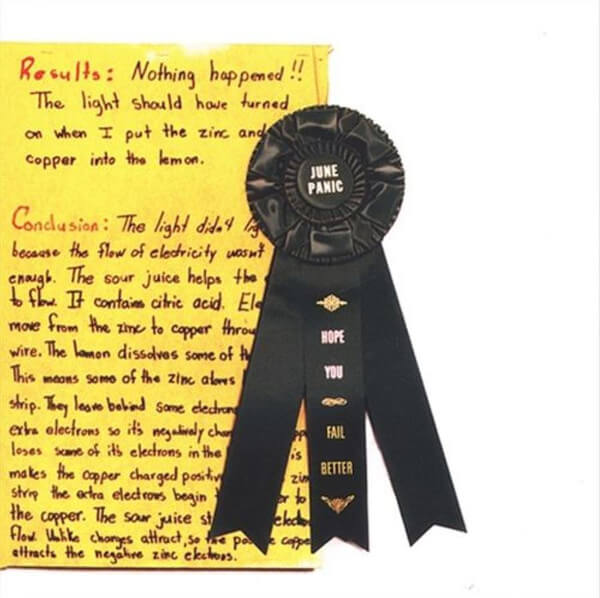 Results: Nothing happened!!
The light should have turned
on when I put the zinc and
copper into the lemon.
Conclusion: The light didn4
because the flow of electricity wasnt
enough. The sour juice helps the
to flow. It contains citric acid. Ele
move from the zinc to copper throu
wire. The lemon dissolves some of th
This means some of the zinc atoms
strip. They leave behind some electrons
extra electrons so it's negatively char
loses some of it's electrons in the is
makes the copper charged positiv zin
strip the extra electrons begin er to
the copper. The sour juice st elect
flow. Unlike charges attract, so the po e coppe
attracts the negative zinc electrons.
JUNE
PANIC
HOPE
YOU
FAIL
BETTER